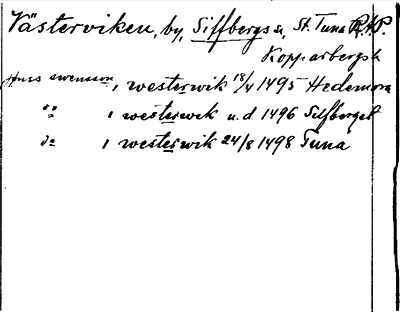 Västerviken, by, Silfbergs s., St. Tuna
Kopparbergs l.
Hans swensson, i westerwik 18/4 1495 Hedemora
do i westerwik u.d 1496 Silfberget
do i westerwik 24/8 1498 Tuna